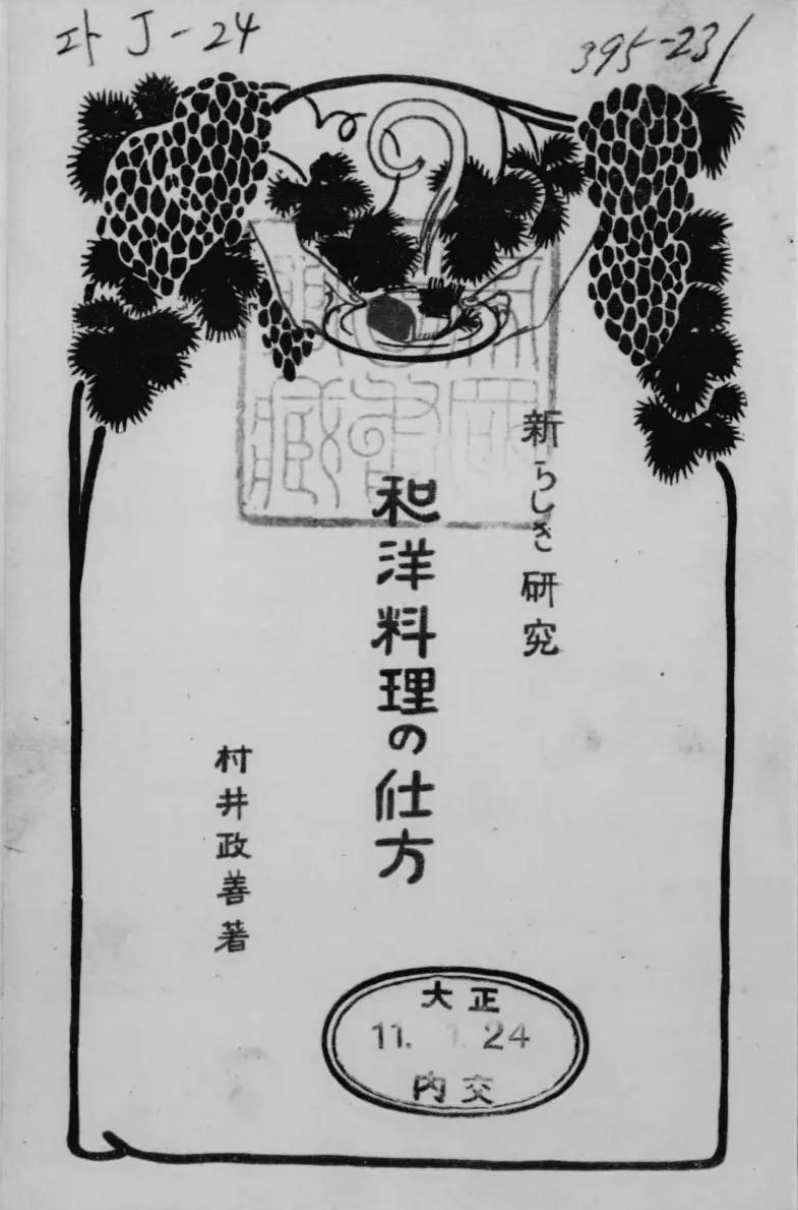 J-24
395-231
新らしき研究
和洋料理の仕方
村井政善著
大正
11. 1. 24
内交